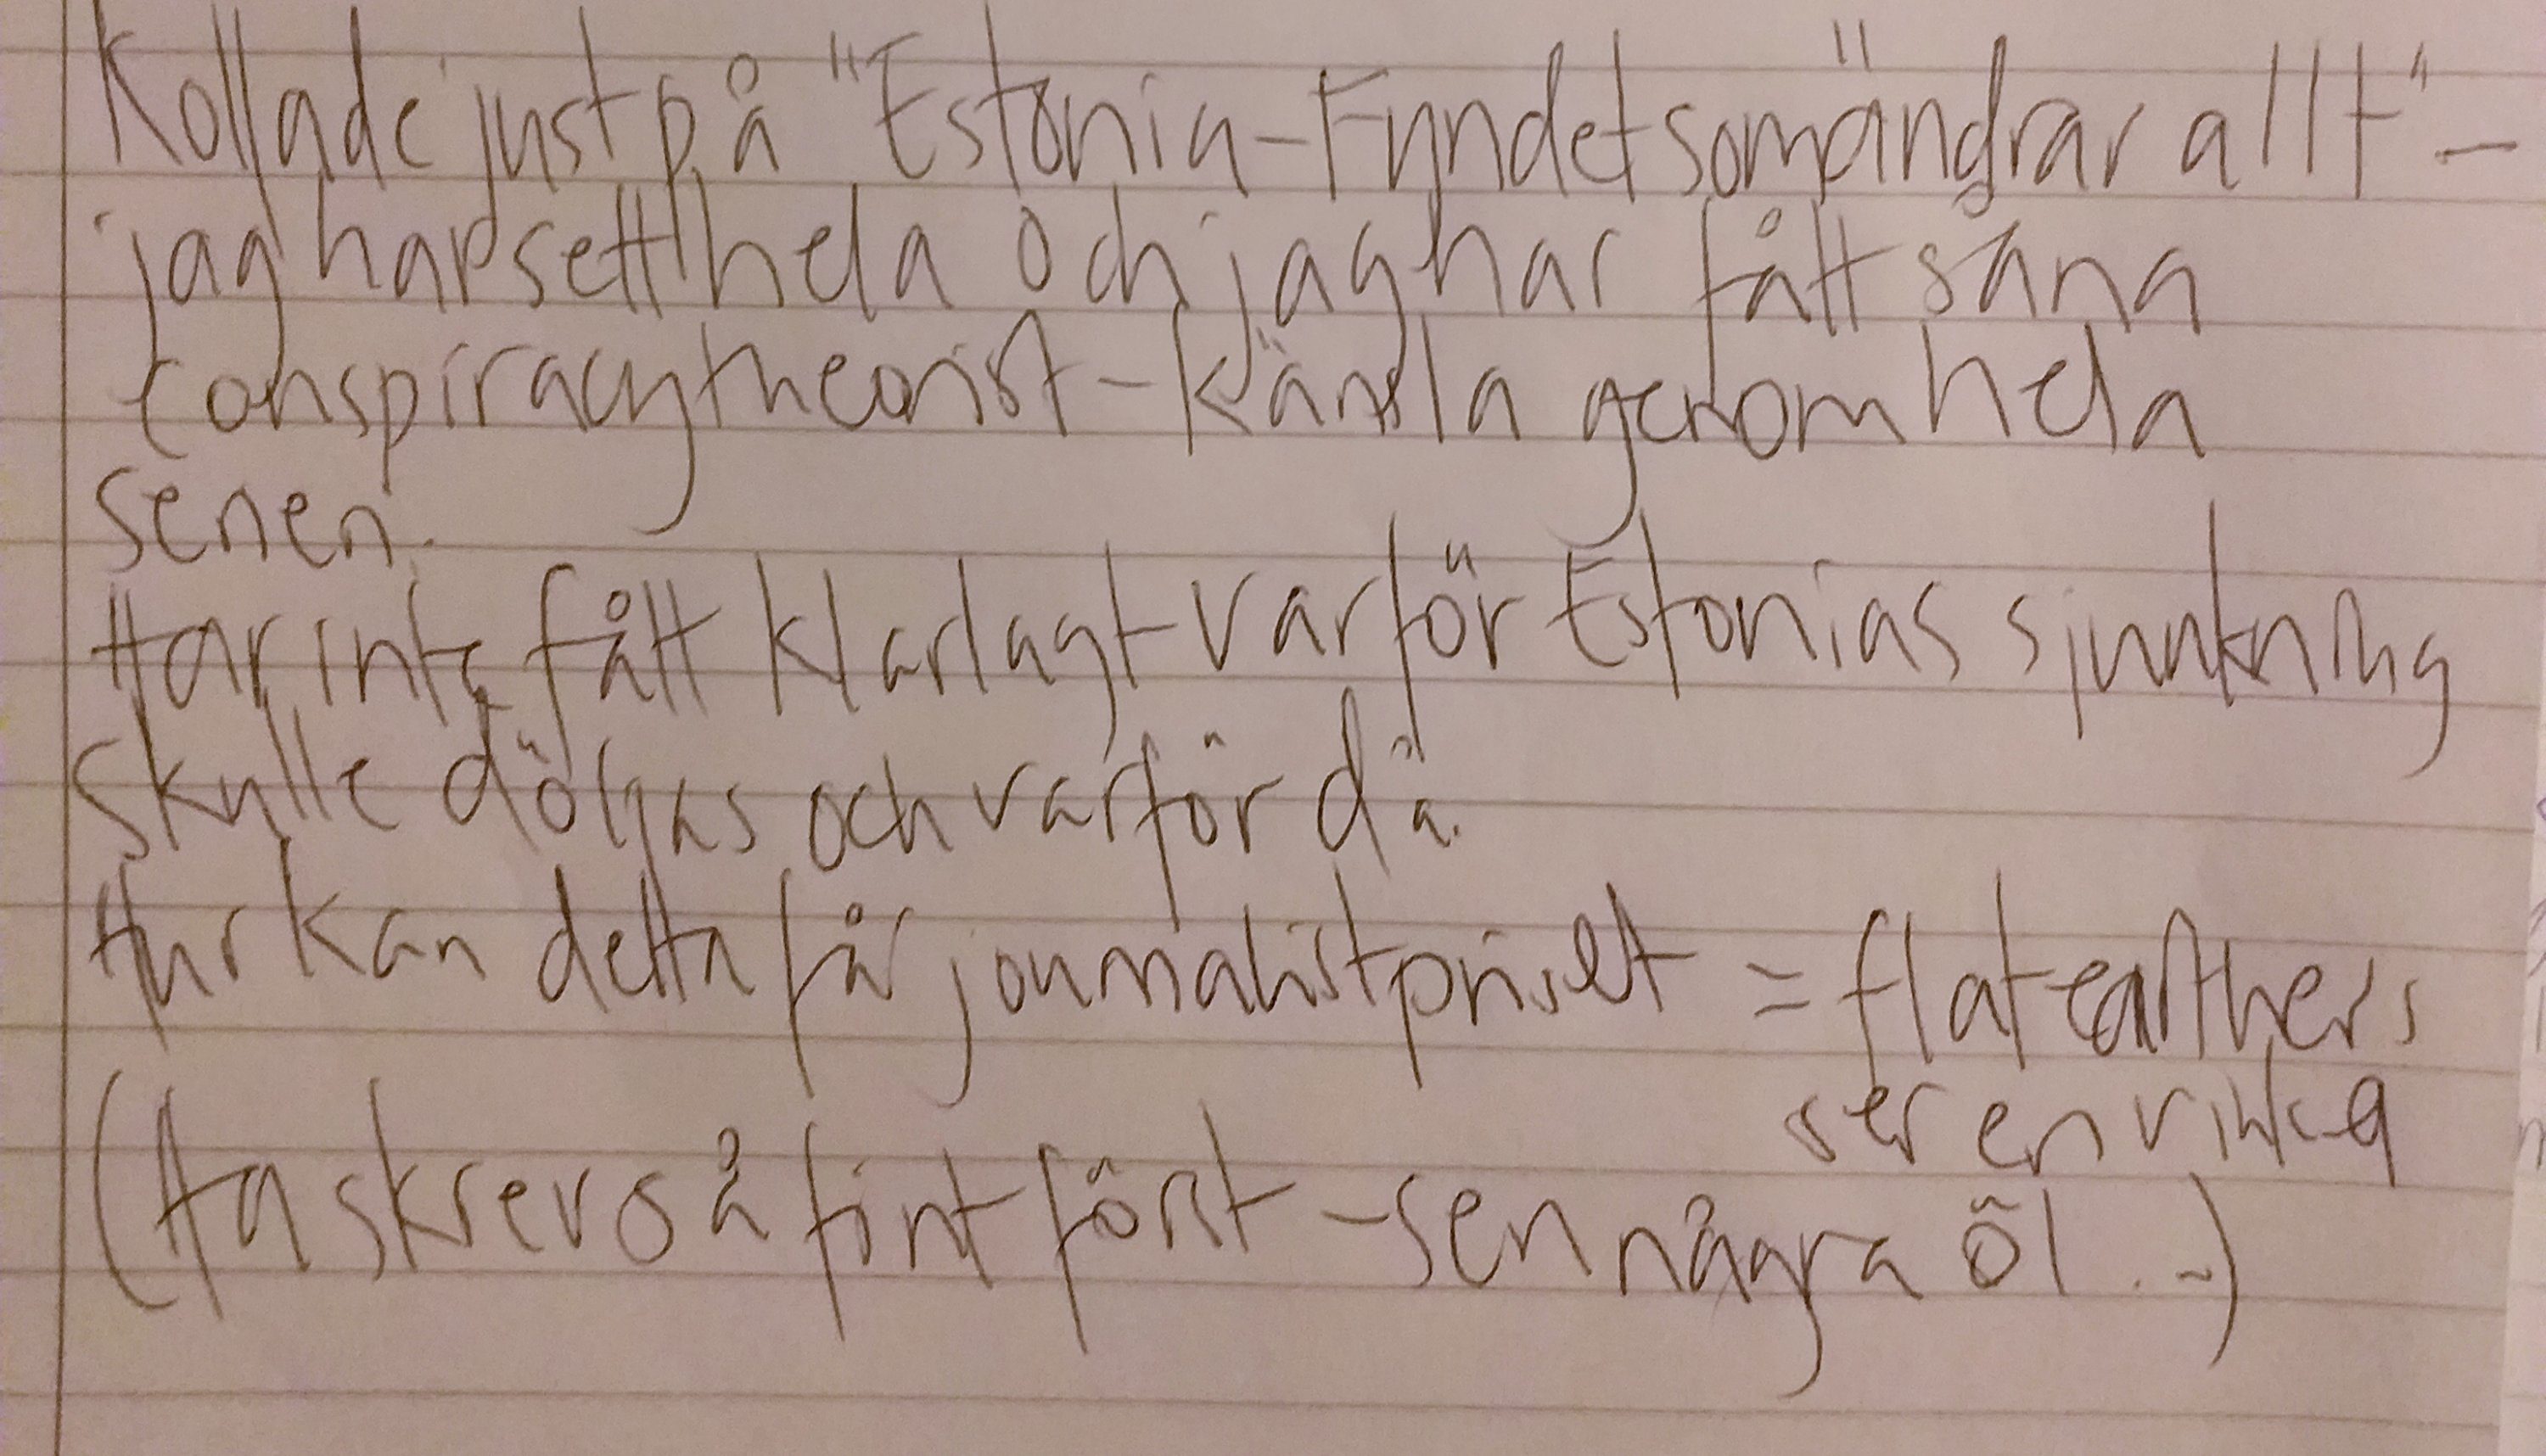 Kollade just på "Estonia - Fyndet som ändrar allt" -
jag har sett hela och jag har fått såna
conspiracytheorist - känsla genom hela
serien.
Har inte fått klarlagt varför Estonias sjunkning
skulle döljas och varför då.
Hur kan detta får journalistpriset = flatearthers
ser en
(Ha skrev så fint först - sen några öl ..)